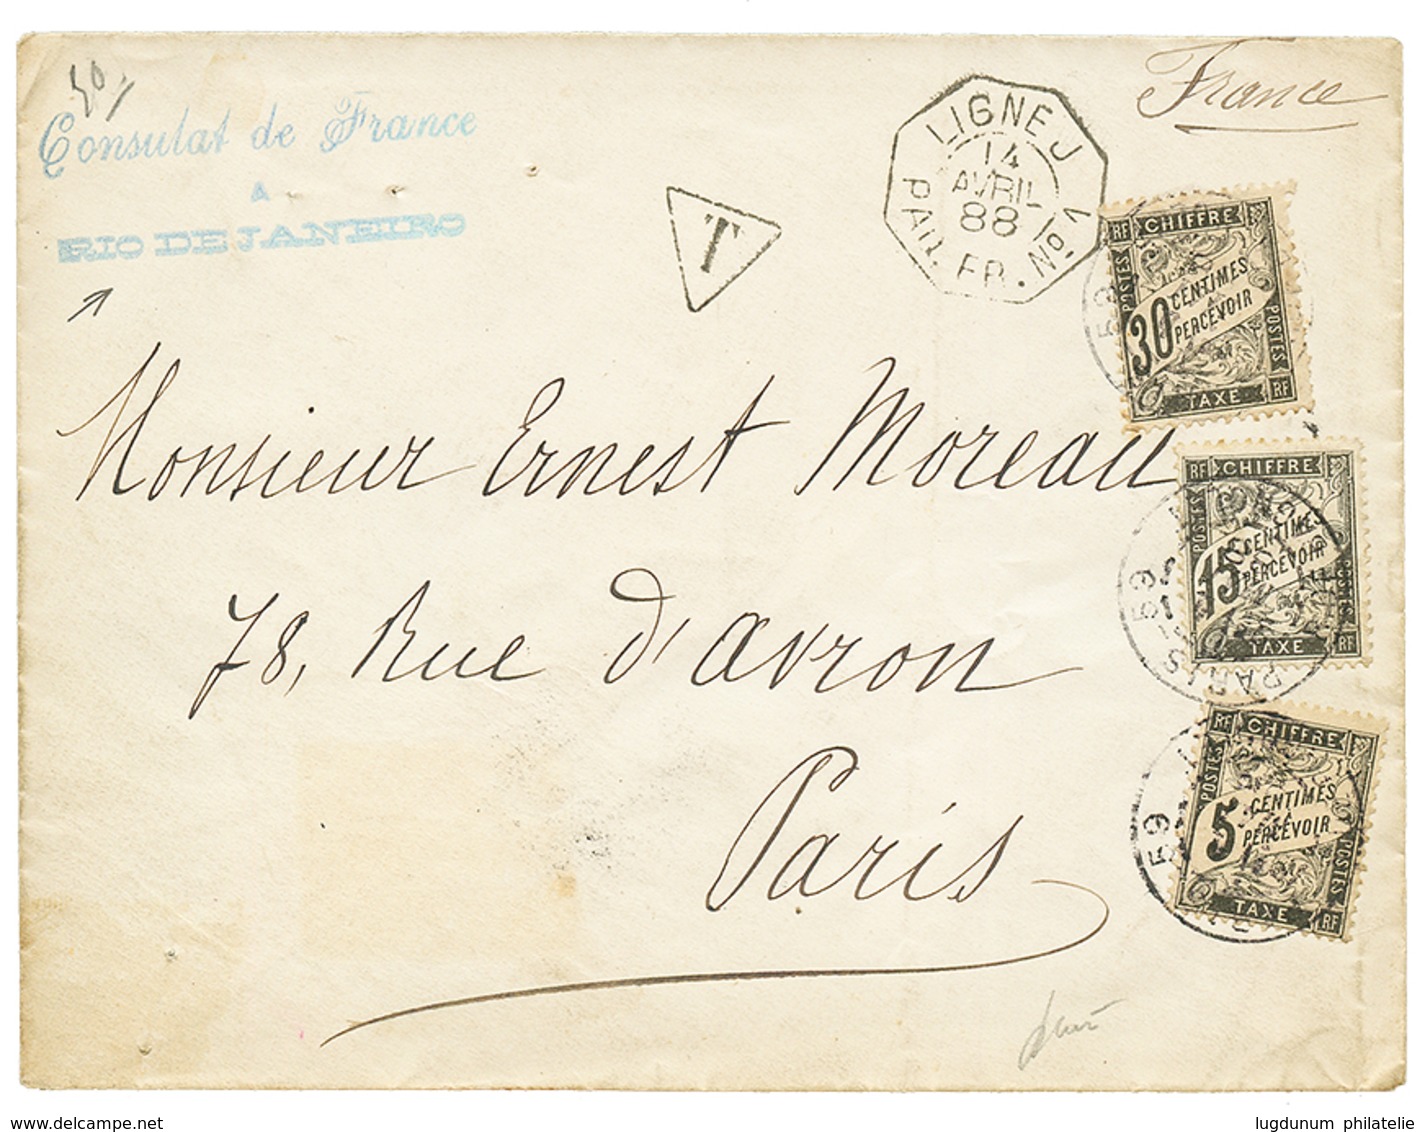 50
France
Consulat de France
A
RIO DE JANEIRO
T
LIGNE J
14
AVRIL
88
PAQ. FR. No. 1
RF CHIFFRE
POSTES
30 CENTIMES
A
PERCEVOIR
POSTES
TAXE RF
Monsieur Ernest Moreau
RF CHIFFRE
POSTES
15 CENTIMES
A
PERCEVOIR
POSTES
TAXE RF
PARIS 59
78, Rue d'Avron
RF CHIFFRE
POSTES
5 CENTIMES
A
PERCEVOIR
POSTES
TAXE RF
59
Paris
www.delcampe.net
lugdunum philatelie